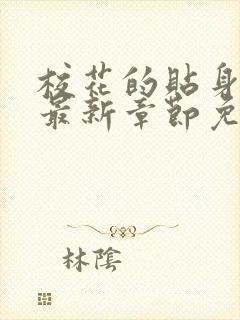 校花的貼身
最新章節免
林陰